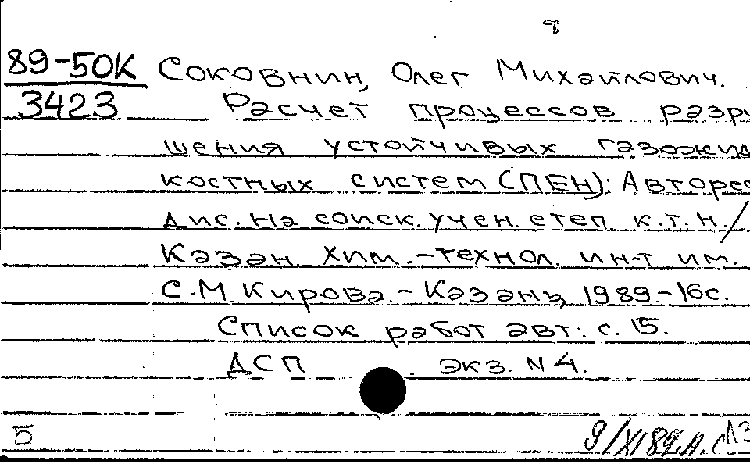 8
89-50К Соковнин, Олег Михайлович.
3423 Расчет процессов разру
шения устойчивых газожид
костных систем (ПЕН): Авторе
дис. на соиск. учен. степ. к.т.н./
Казан. хим.-технол. ин-т им.
С.М. Кирова.-Казань, 1989-16с.
Список работ авт.: с. 15.
ДСП . экз. N 4.
5 9/XI89